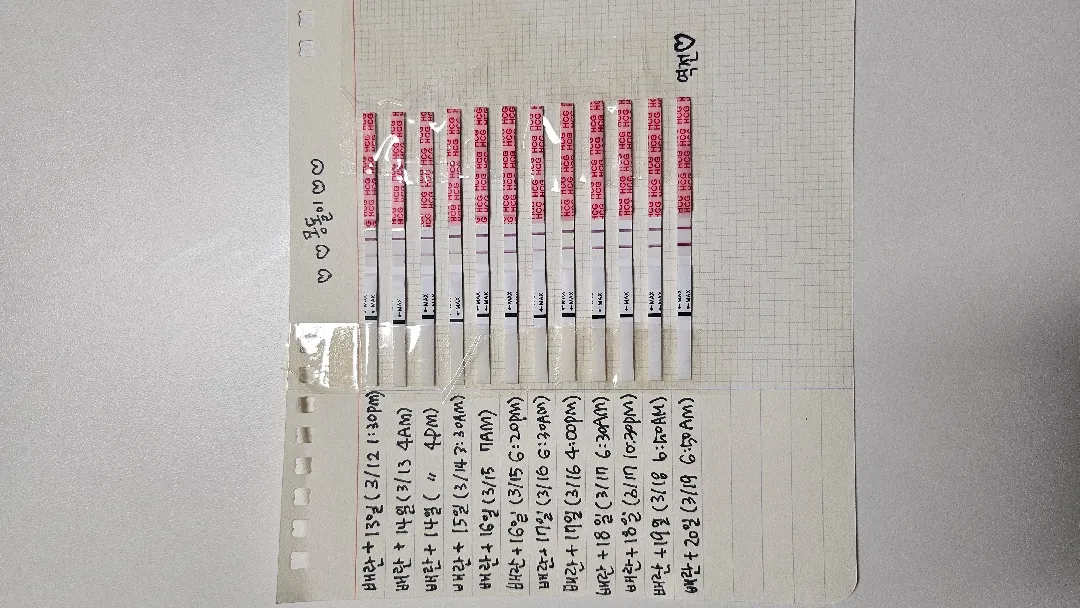 ♡♡몽돌이♡♡
배란+13일 (3/12 1:30pm)
배란+14일 (3/13 4AM)
배란+14일 ( 〃 4pm)
배란+15일 (3/14 3:30AM)
배란+16일 (3/15 7AM)
배란+16일 (3/15 6:20pm)
배란+17일 (3/16 6:30AM)
배란+17일 (3/16 4:00pm)
배란+18일 (3/17 6:30AM)
배란+18일 (3/17 10:30pm)
배란+19일 (3/18 6:50AM)
배란+20일 (3/19 6:50AM)
역전♡
HCG HCG HCG
← MAX